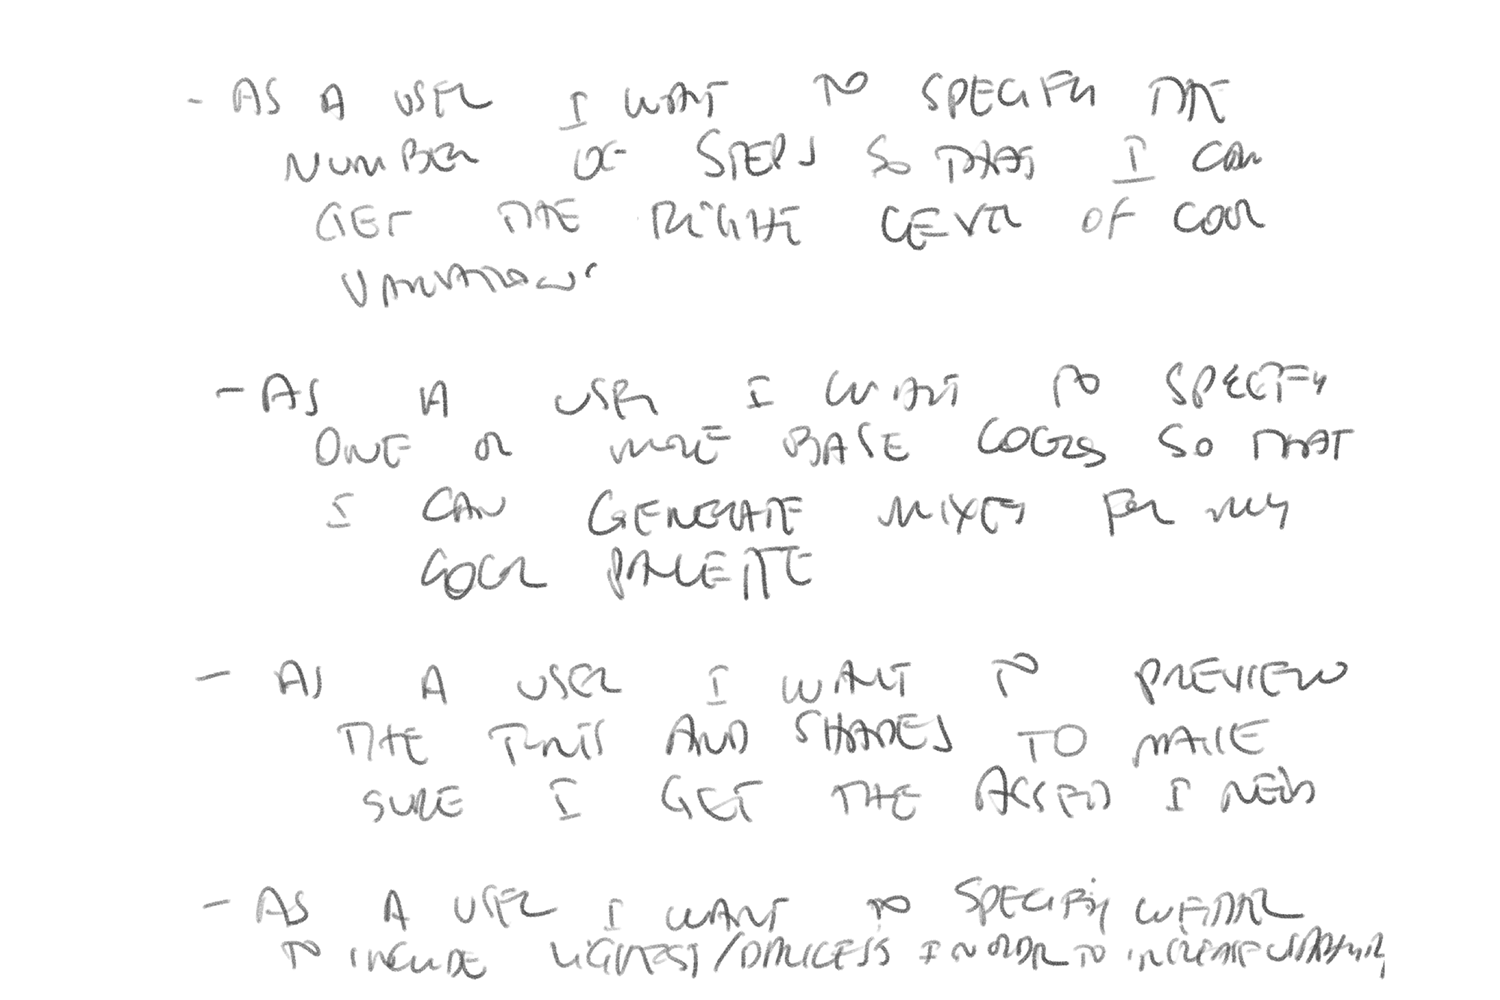 - AS A USER I WANT TO SPECIFY THE
NUMBER OF STEPS SO THAT I CAN
GET THE RIGHT LEVEL OF COLOR
VARIATIONS
- AS A USER I WANT TO SPECIFY
ONE OR MORE BASE COLORS SO THAT
I CAN GENERATE MIXES FOR MY
COLOR PALETTE
- AS A USER I WANT TO PREVIEW
THE TINTS AND SHADES TO MAKE
SURE I GET THE ASSETS I NEED
- AS A USER I WANT TO SPECIFY WETHER
TO INCLUDE LIGHTEST/DARKEST IN ORDER TO INCREASE USABILITY